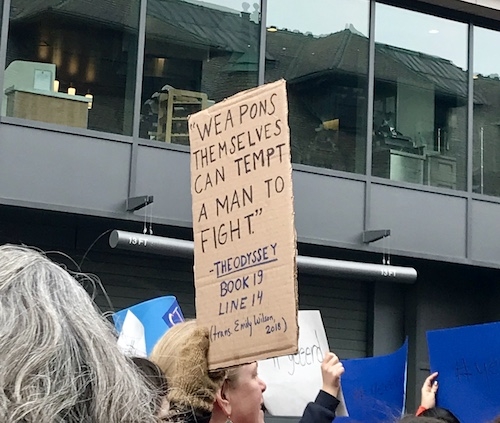 "WEAPONS
THEMSELVES
CAN TEMPT
A MAN TO
FIGHT."
-THE ODYSSEY
BOOK 19
LINE 14
(trans. Emily Wilson,
2018)
13 FT
13 FT